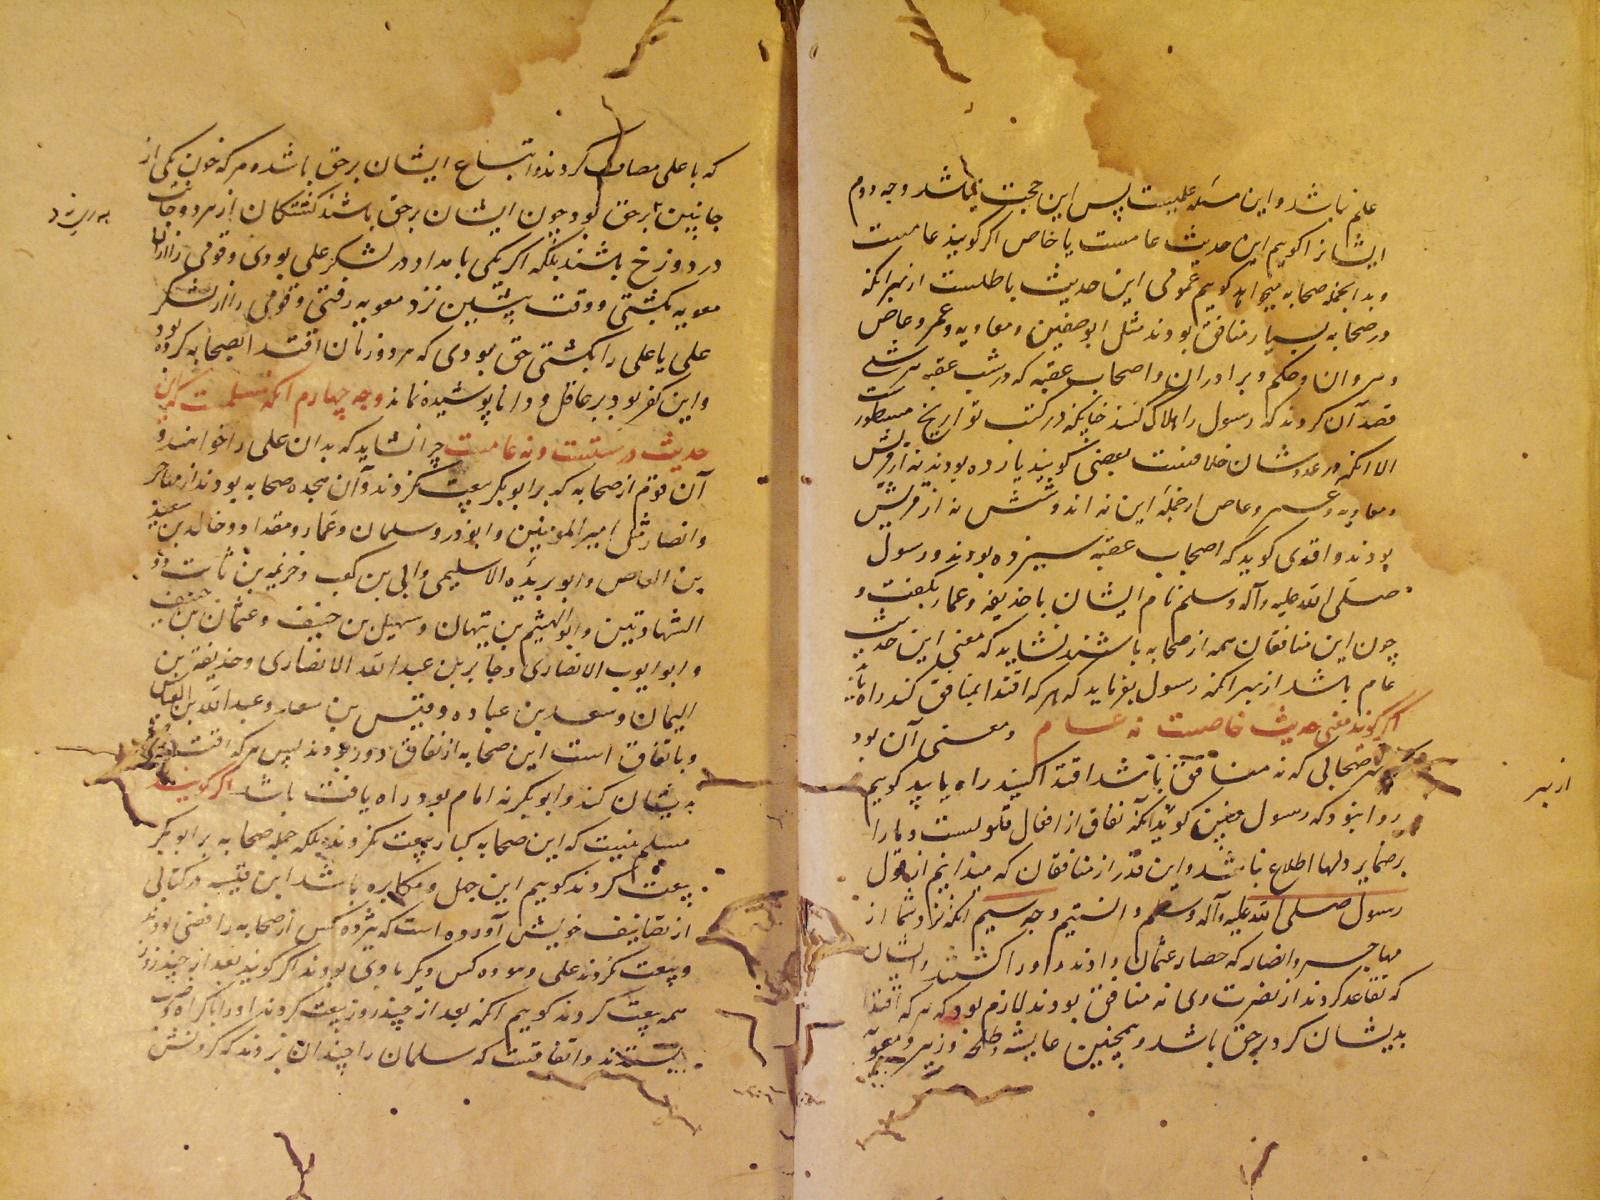 علم نباشد و این مسئله علمیست پس این حجت نباشد وجه دوم
ایشانرا گوییم این حدیث عامست یا خاص اگر گویند عامست
و بدا جمله صحابه میخواهد گوییم عمومی این حدیث باطلست از بهر آنکه
در صحابه بسیار منافق بودند مثل ابو سفین و معاویه و عمرو عاص
و مروان و حکم و برادران و اصحاب عقبه که در شب عقبه
قصد آن کردند که رسول را هلاک کنند چنانکه در کتب تواریخ مسطور
الا آنکه در عددشان خلافست بعضی گویند یازده بودند نه از قریش
و معاویه و عمرو عاص از جمله این نه اند و شش نه از قریش
بودند واقدی گوید که اصحاب عقبه سیزده بودند و رسول
صلی الله علیه و آله و سلم نام ایشان با حذیفه و عمار بگفت و
چون این منافقان همه از صحابه باشند نشاید که معنی این حدیث
عام باشد از بهر آنکه رسول بفرماید که هر که اقتدا بمنافق کند راه یابد
اگر گویند معنی حدیث خاصست نه عام و معنی آن بود
هر صحابی که نه منافق باشد اقتدا کنید راه یابید گوییم
روا بود که رسول چنین گوید آنکه نفاق از افعال قلوبست و ما را
بر ضمایر دلها اطلاع نباشد و این قدر از منافقان که میدانیم از قول
رسول صلی الله علیه و آله و سلم دانستیم وجه سیم آنکه نزد شما از
مهاجر و انصار که حصار عثمان دادند و او را کشتند و ایشان
که تقاعد کردند از نصرت وی نه منافق بودند لازم بود که هر که اقتدا
بدیشان کرد بر حق باشد و همچنین عایشه و طلحه و زبیر و معویه
از بهر
که با علی مصاف کردند و اتباع ایشان بر حق باشد و هر که خون یکی از
جانبین بر حق بود چون ایشان بر حق باشند کشتگان از هر دو جانب
در دوزخ باشند بلکه اگر یکی بامداد در لشکر علی بودی و قومی را از آن
معویه بکشتی و وقت پیشین نزد معویه رفتی و قومی را از لشکر
علی یا علی را بکشتی حق بودی که هر دو زمان اقتدا بصحابه کرده بود
و این کفر بود بر عاقل و دانا پوشیده نماند وجه چهارم آنکه مسلمست که این
حدیث درستست و نه عامست چرا نشاید که بدان علی را خواهند و
آن قوم از صحابه که بر ابو بکر بیعت نکردند و آن هجده صحابه بودند از مهاجر
و انصار مثل امیر المومنین و ابوذر و سلمان و عمار و مقداد و خالد بن سعید
بن العاص و ابو بریده الاسلیمی و ابی بن کعب و خزیمه بن ثابت ذو
الشهادتین و ابو الهیثم بن تیهان و سهیل بن حنیف و عثمان بن حنیف
و ابو ایوب الانصاری و جابر بن عبد الله الانصاری و حذیفه بن
الیمان و سعد بن عباده و قیس بن سعد و عبد الله بن العباس
و باتفاق است این صحابه از نفاق دور بودند پس هر که اقتدا
بدیشان کند و ابو بکر نه امام بود راه یافته باشد اگر گویند
مسلم نیست که این صحابه کبار بیعت نکردند بلکه جمله صحابه بر ابو بکر
بیعت کردند گوییم این جهل و مکابره باشد ابن قتیبه در کتابی
از تصانیف خویش آورده است که هژده کس از صحابه رافضی بودند
و بیعت نکردند علی و هفده کس دیگر با وی بودند اگر گویند بعد از چند روز
همه بیعت کردند گوییم آنکه بعد از چند روز بیعت کردند او را باکراه و ضرب
بستدند و اتفاقست که سلمان را چندان بزدند که گردنش